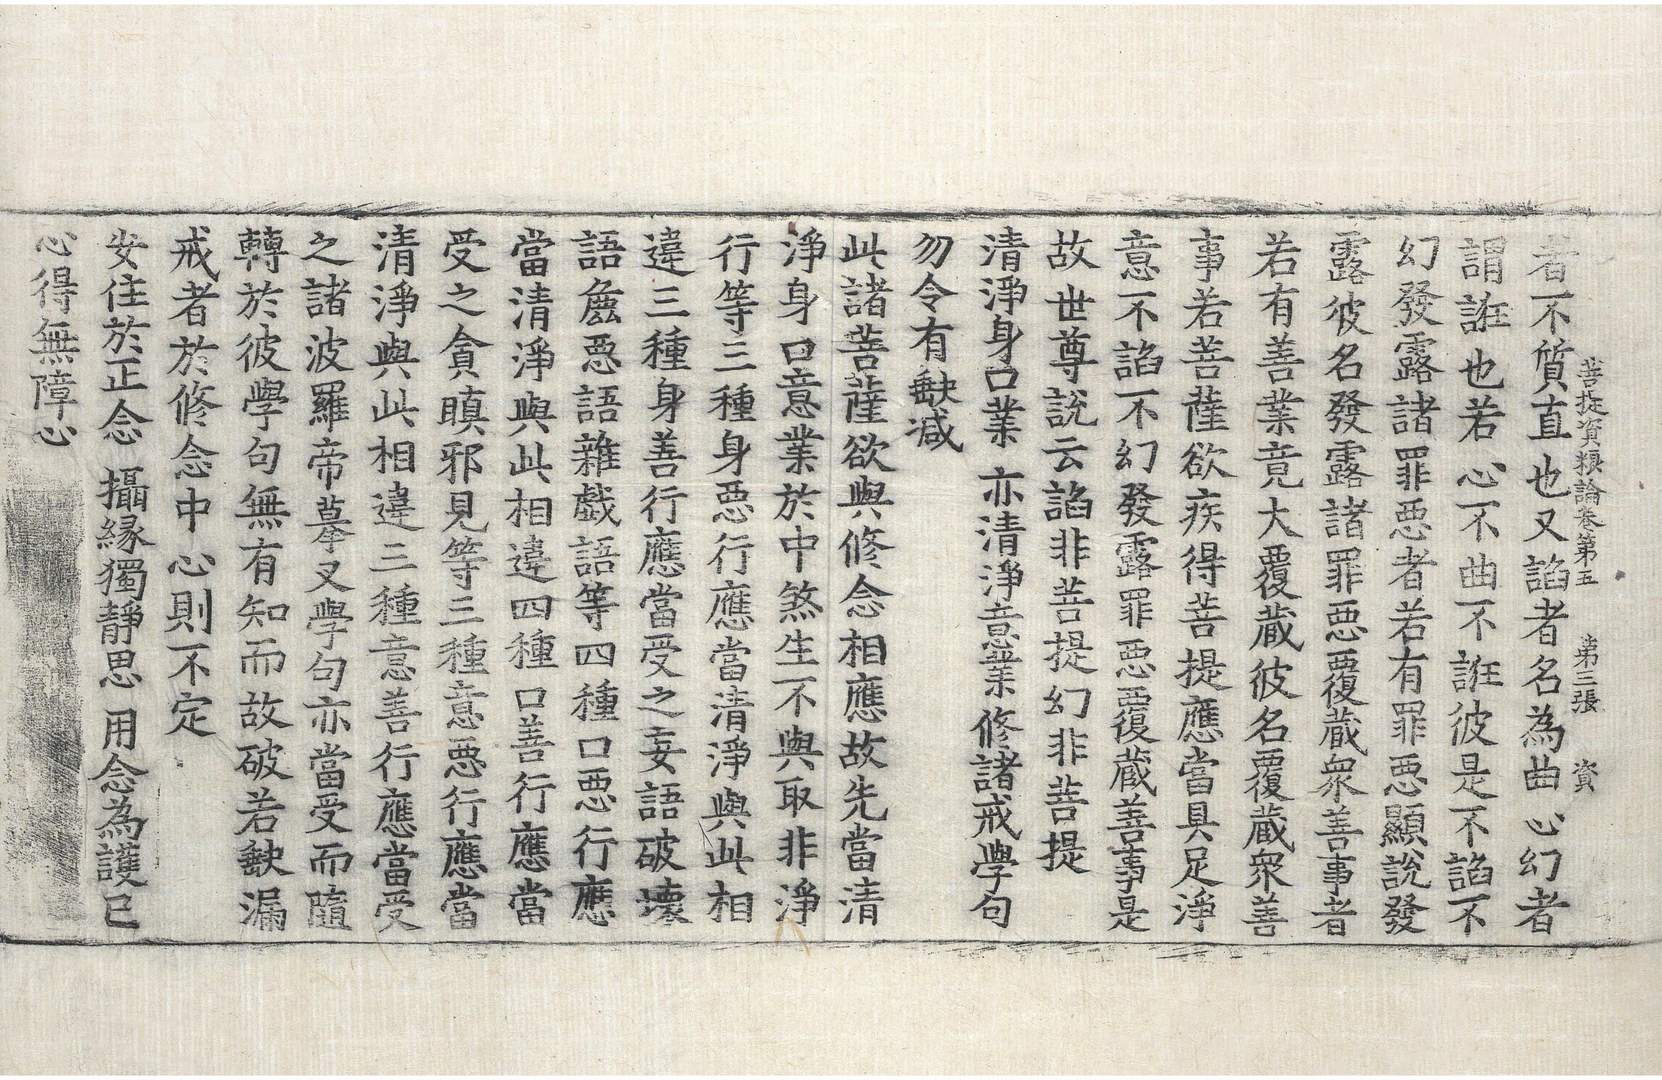 菩提資糧論卷第五 第三張 資
者不質直也又諂者名為曲心幻者
謂誑也若心不曲不誑彼是不諂不
幻發露諸罪惡者若有罪惡顯說發
露彼名發露諸罪惡覆蔵衆善事者
若有善業竟大覆蔵彼名覆蔵衆善
事若菩薩欲疾得菩提應當具足淨
意不諂不幻發露罪惡覆蔵善事是
故世尊說云諂非菩提幻非菩提
清淨身口業 亦清淨意業 修諸戒學句
勿令有缺減
此諸菩薩欲與修念相應故先當清
淨身口意業於中煞生不與取非淨
行等三種身惡行應當清淨與此相
違三種身善行應當受之妄語破壞
語麁惡語雜戱語等四種口惡行應
當清淨與此相違四種口善行應當
受之貪瞋邪見等三種意惡行應當
清淨與此相違三種意善行應當受
之諸波羅帝摹叉學句亦當受而隨
轉於彼學句無有知而故破若缺漏
戒者於修念中心則不定
安住於正念 攝緣獨靜思 用念為護已
心得無障心